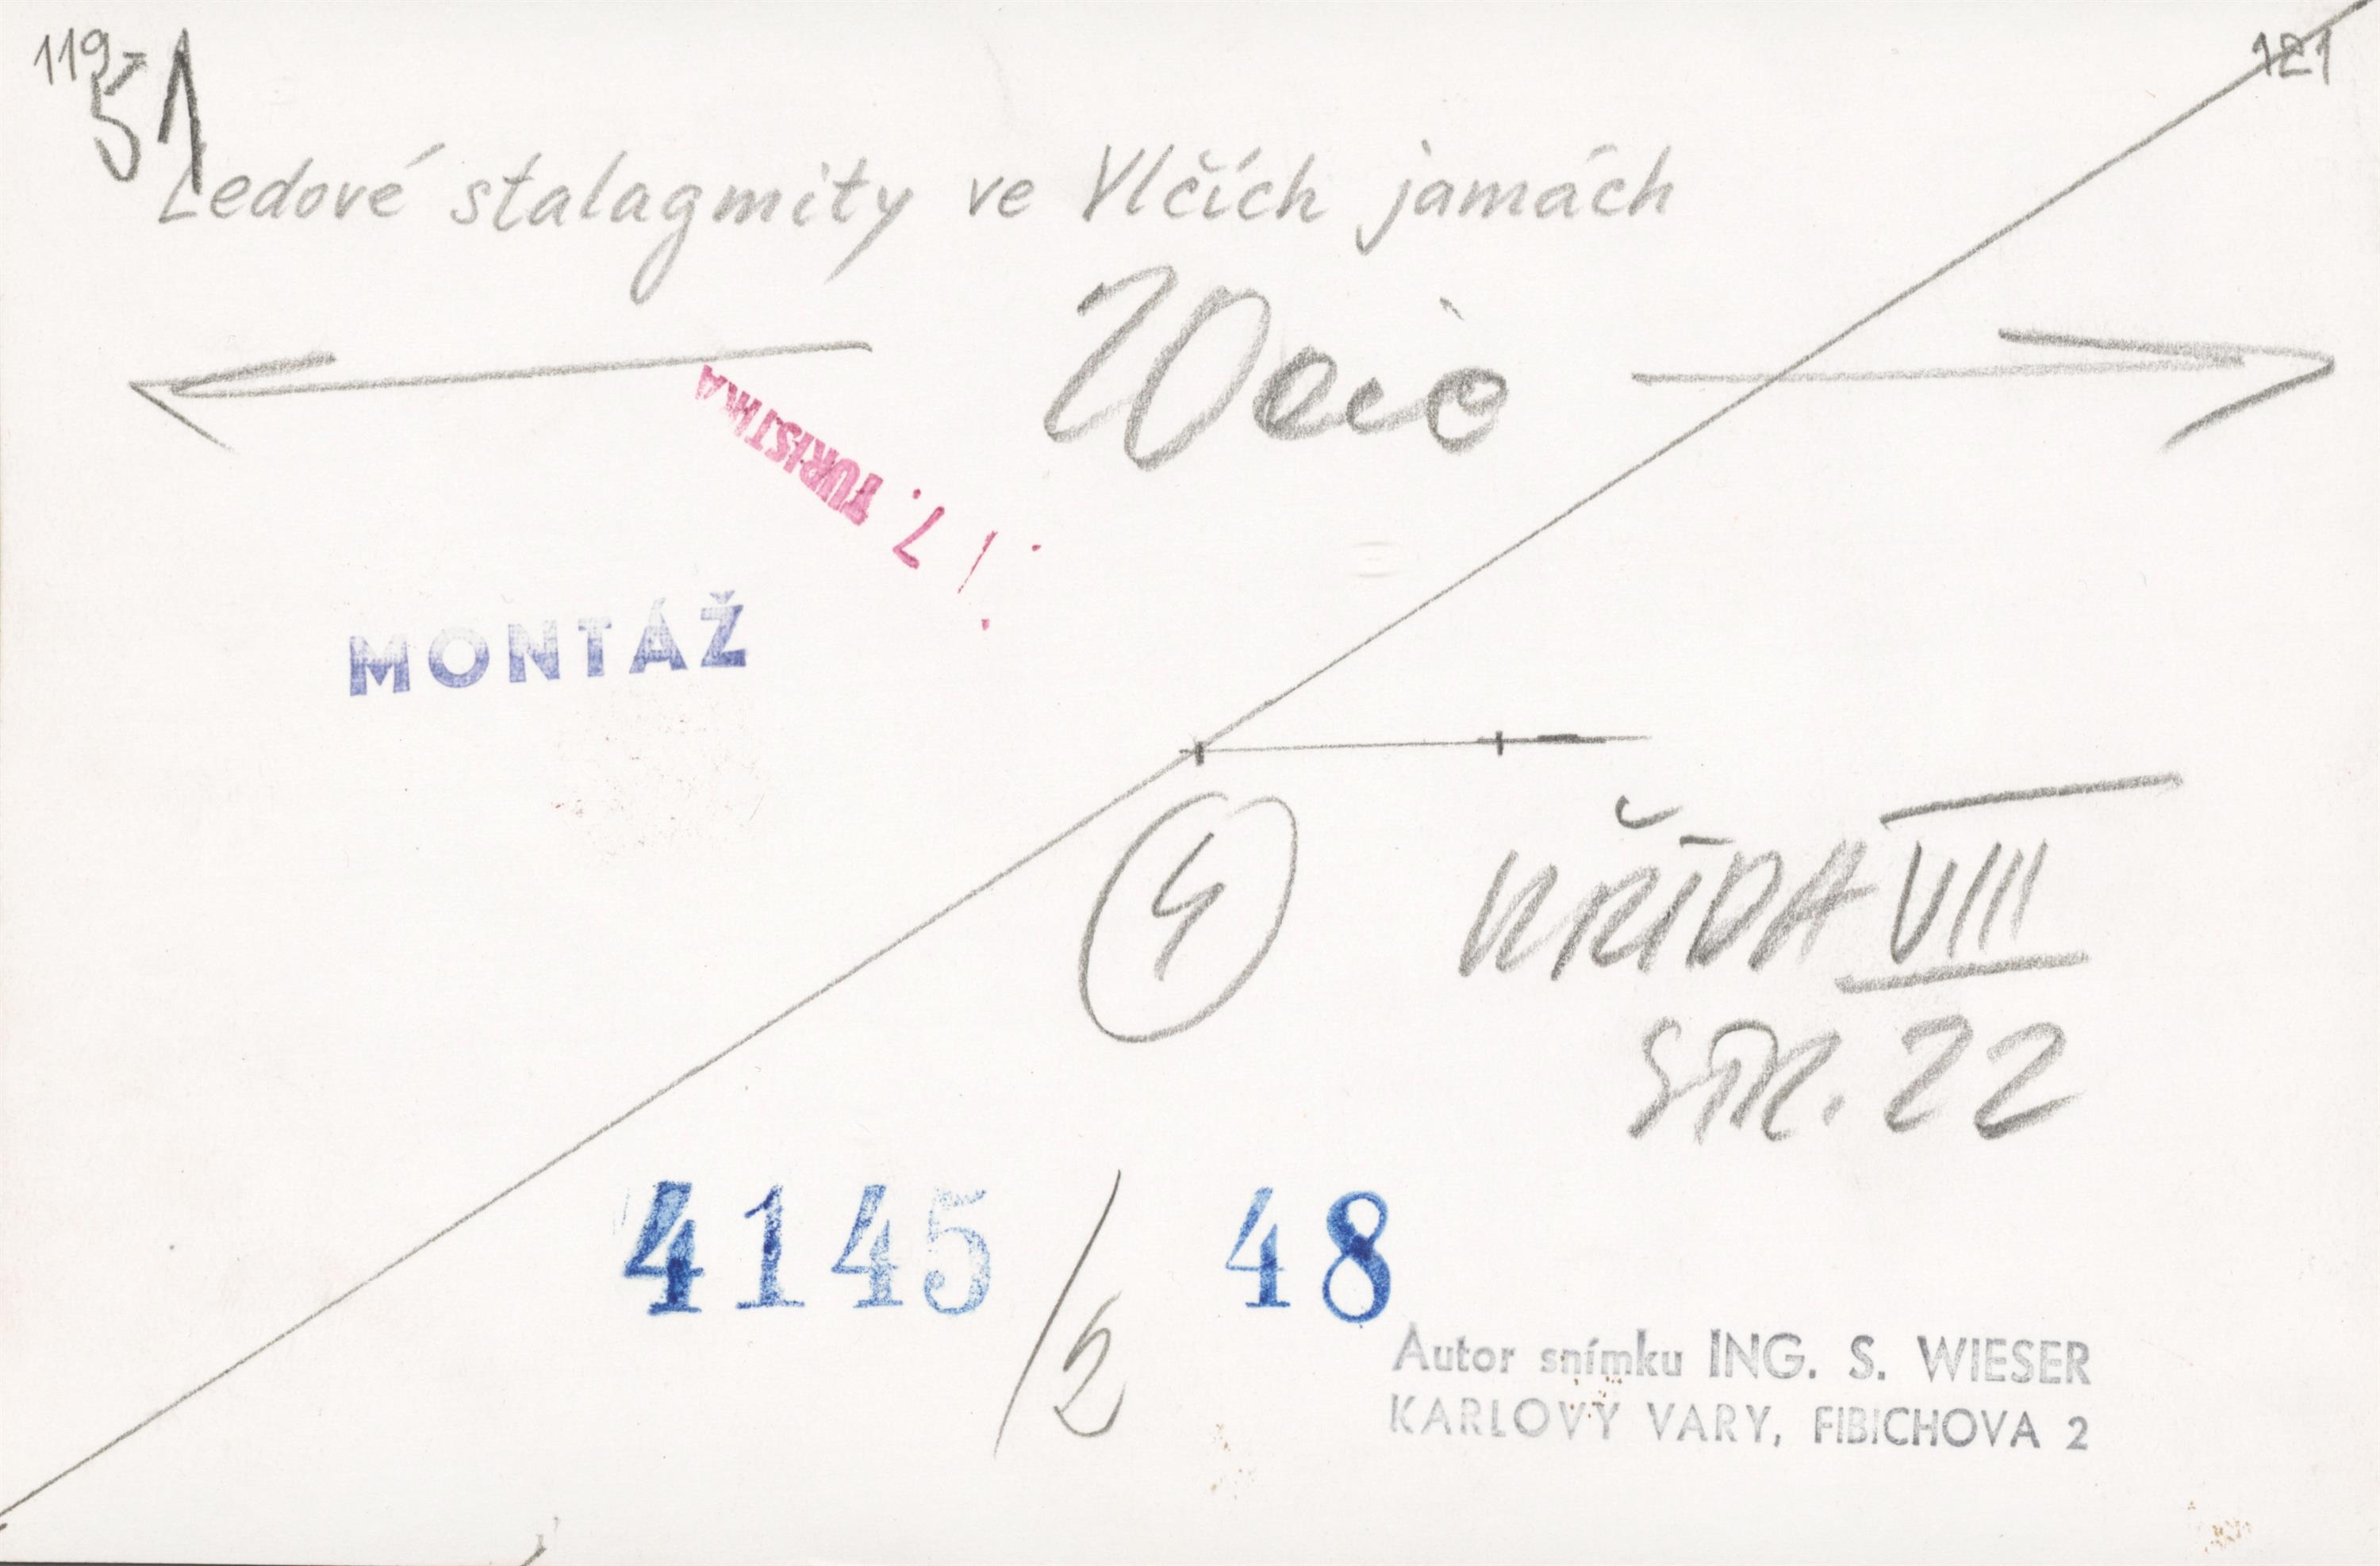 119-
121
51
Ledové stalagmity ve Vlčích jamách
20 cic
7. TURISTIKA
MONTÁŽ
4
KŘÍDA VIII
STR. 22
4145 / 2 48
Autor snímku ING. S. WIESER
KARLOVY VARY, FIBICHOVA 2